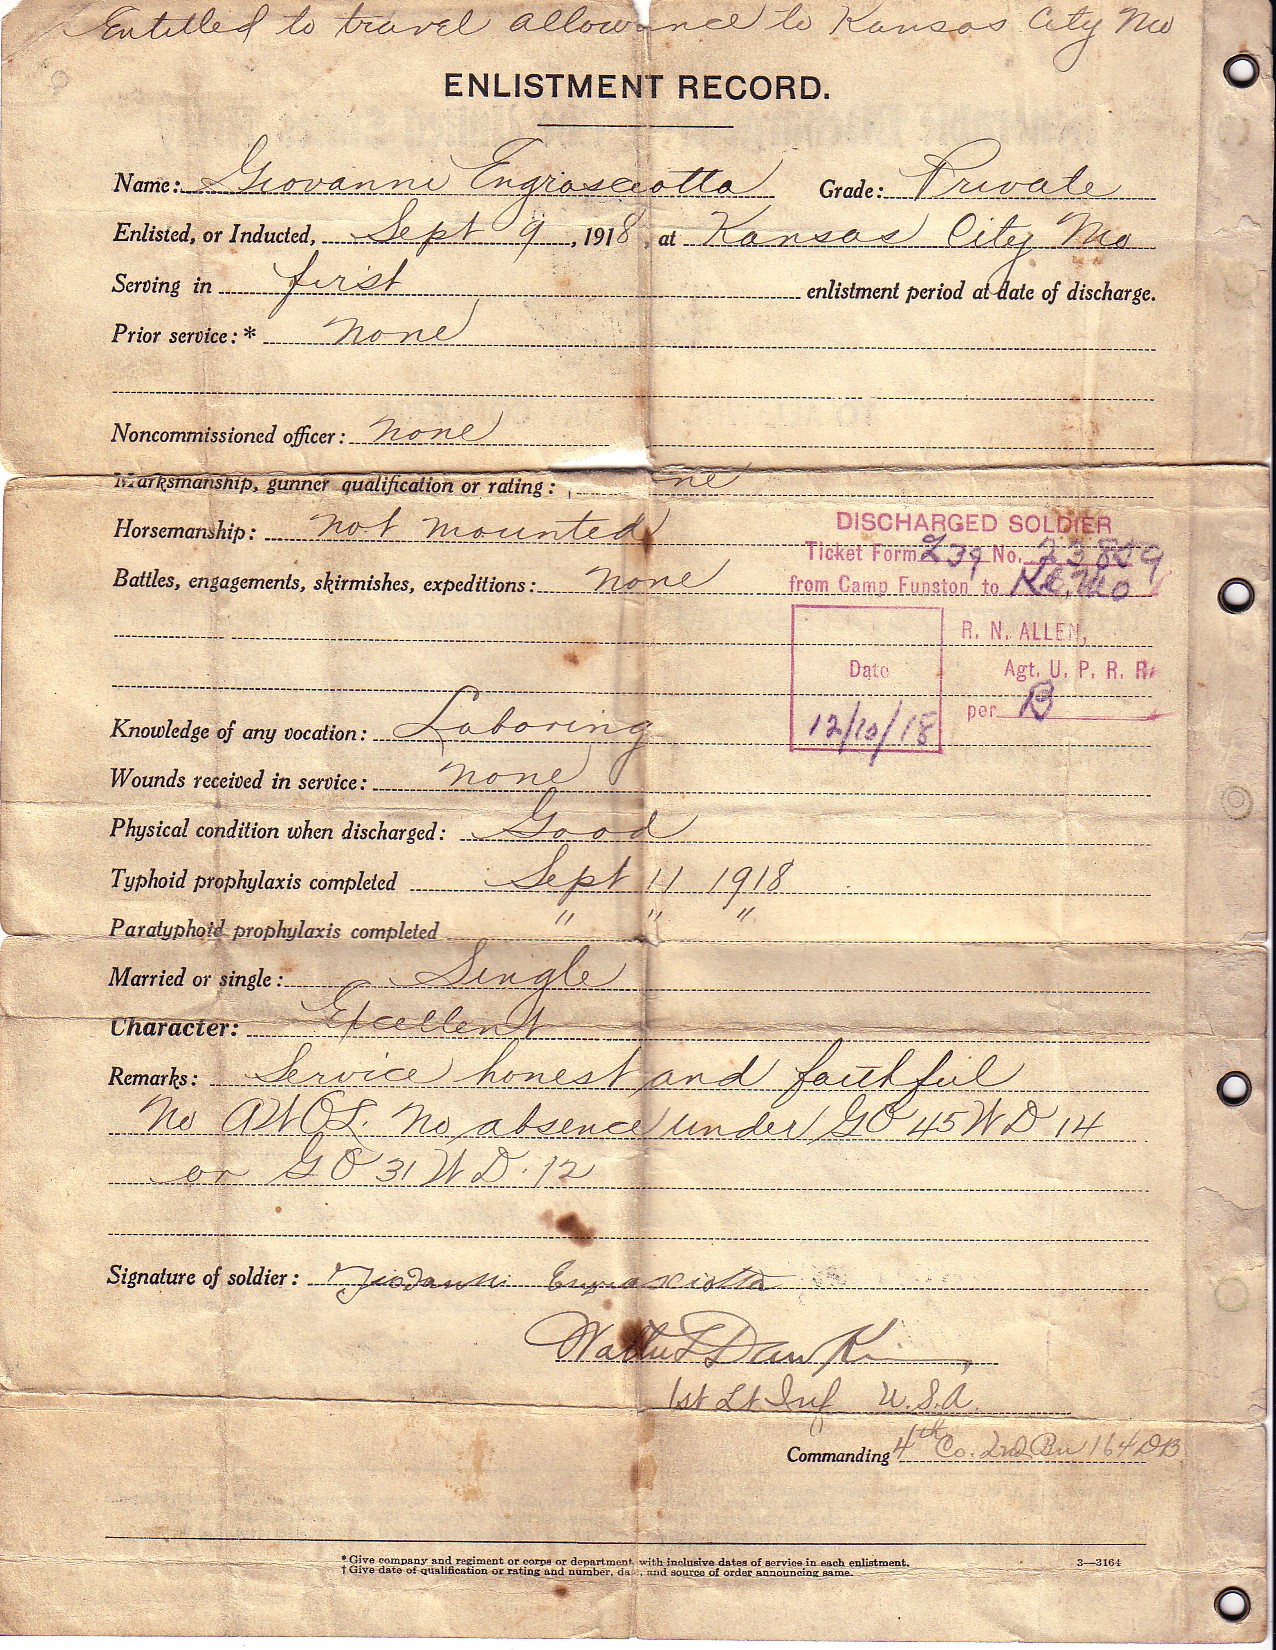 Entitled to travel allowance to Kansas City Mo
ENLISTMENT RECORD.
Name: Giovanni Engrasciotta Grade: Private
Enlisted, or Inducted, Sept 9, 1918, at Kansas City Mo
Serving in first enlistment period at date of discharge.
Prior service:* none
Noncommissioned officer: none
Marksmanship, gunner qualification or rating:
Horsemanship: not mounted
Battles, engagements, skirmishes, expeditions: none
DISCHARGED SOLDIER
Ticket Form Z39 No. 23859
from Camp Funston to K.C. Mo
R. N. ALLEN,
Date Agt. U. P. R. R.
12/10/18 per B
Knowledge of any vocation: Laboring
Wounds received in service: none
Physical condition when discharged: Good
Typhoid prophylaxis completed Sept 11 1918
Paratyphoid prophylaxis completed " " "
Married or single: Single
Character: Excellent
Remarks: Service honest and faithful
No AWOL. No absence under GO 45 WD 14
or GO 31 WD. 12
Signature of soldier: Giovanni Engrasciotta
1st Lt Inf U.S.A.
Commanding 4th Co. 2nd Bn 164 DB
*Give company and regiment or corps or department, with inclusive dates of service in each enlistment. 3—3164
†Give date of qualification or rating and number, da, and source of order announcing same.